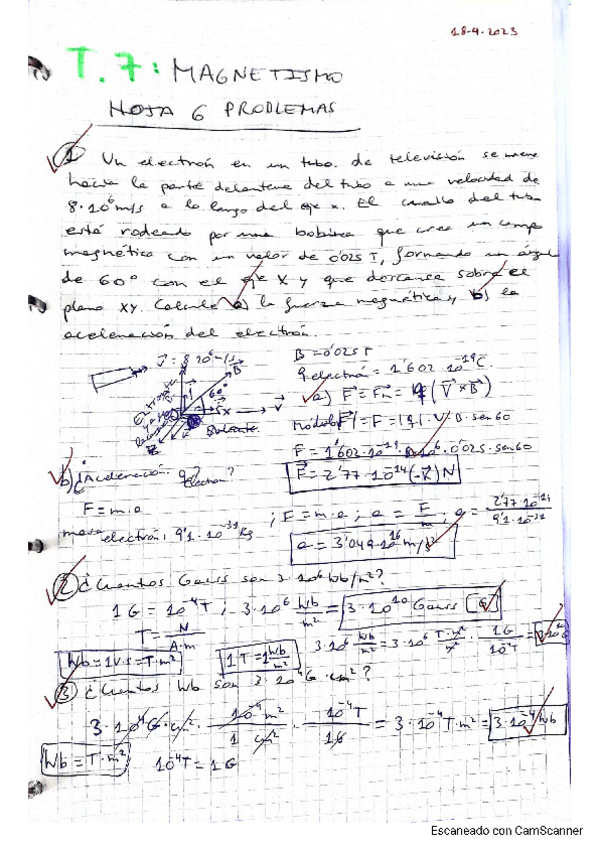 18-4-2023
T.7: MAGNETISMO
HOJA 6 PROBLEMAS
1 Un electrón en un tubo de televisión se mueve
hacia la parte delantera del tubo a una velocidad de
8·10⁶ m/s a lo largo del eje x. El cuello del tubo
está rodeado por una bobina que crea un campo
magnético con un valor de 0'025 T, formando un ángulo
de 60° con el eje X y que descansa sobre el
plano XY. Calcule a) la fuerza magnética y b) la
aceleración del electrón.
B = 0'025 T
q electrón = 1'602·10⁻¹⁹ C.
a) F = Fm = q (V × B)
Módulo |F| = F = |q|·V·B·sen 60
F = 1'602·10⁻¹⁹·8·10⁶·0'025·sen 60
F = 2'77·10⁻¹⁴ (-K) N
b) ¿Aceleración electrón?
F = m·a
masa electrón: 9'1·10⁻³¹ Kg
; F = m·a ; a = F/m ; a = 2'77·10⁻¹⁴ / 9'1·10⁻³¹
a = 3'04·10¹⁶ m/s²
2 ¿Cuántos Gauss son 3·10⁶ Wb/m²?
1 G = 10⁻⁴ T ; 3·10⁶ Wb/m² = 3·10¹⁰ Gauss (G)
T = N / A·m
3·10⁶ Wb/m² = 3·10⁶ T·m²/m² · 1G/10⁻⁴T = 3·10¹⁰ G
Wb = 1V·s = T·m²
1T = 1 Wb/m²
3 ¿Cuántos Wb son 3·10⁴ G·cm²?
3·10⁴ G·cm² · 10⁻⁴ m² / 1 cm² · 10⁻⁴ T / 1G = 3·10⁻⁴ T·m² = 3·10⁻⁴ Wb
Wb = T·m²
10⁻⁴ T = 1 G
Escaneado con CamScanner